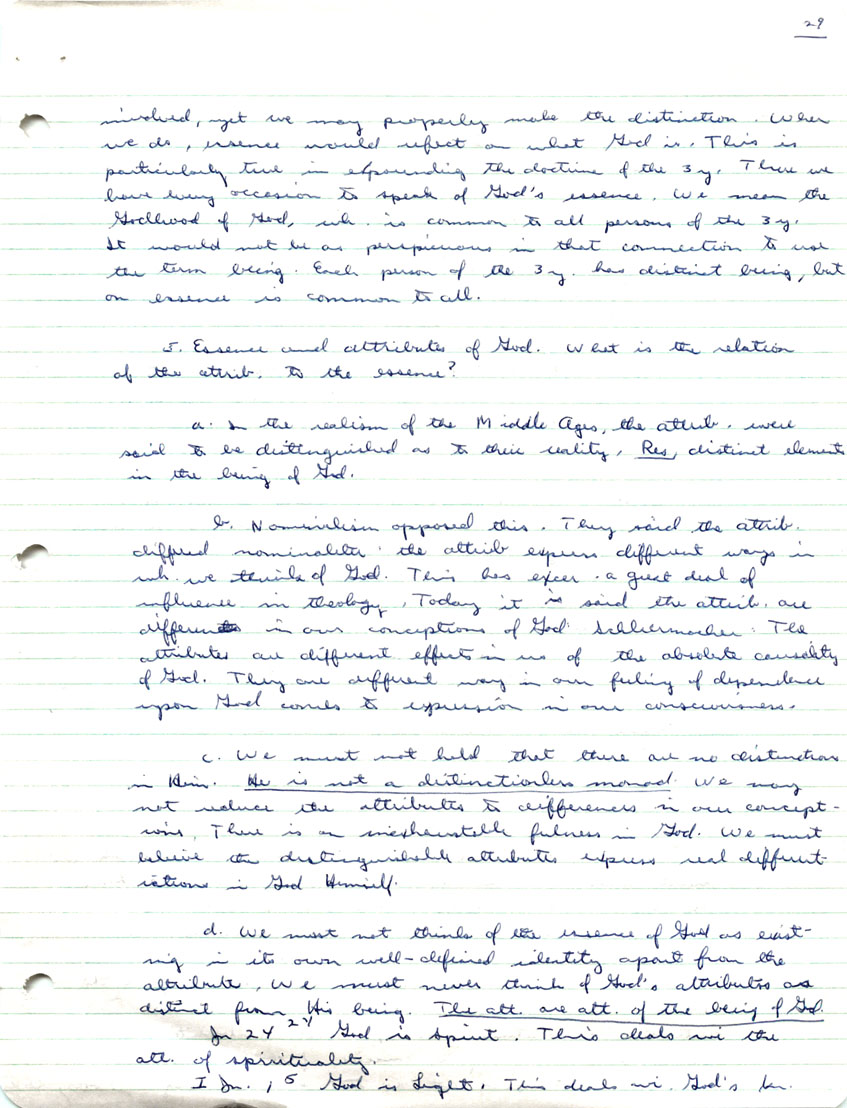 29
involved, yet we may properly make the distinction. When
we do, essence would reflect on what God is. This is
particularly true in expounding the doctrine of the 3y. There we
have every occasion to speak of God's essence. We mean the
Godhood of God, wh. is common to all persons of the 3y.
It would not be as perspicuous in that connection to use
the term being. Each person of the 3y. has distinct being, but
on essence is common to all.
5. Essence and attributes of God. What is the relation
of the attrib. to the essence?
a. In the realism of the Middle Ages, the attrib. were
said to be distinguished as to their reality, Res, distinct elements
in the being of God.
b. Nominalism opposed this. They said the attrib.
differed nominaliter: the attrib express different ways in
wh. we think of God. This has exer. a great deal of
influence in theology. Today it is said the attrib. are
different in our conceptions of God. Schliermacher: The
attributes are different effects in us of the absolute causality
of God. They are different way in our feeling of dependence
upon God comes to expression in our consciousness.
c. We must not hold that there are no distinctions
in Him. He is not a distinctionless monad. We may
not reduce the attributes to differences in our concept-
ions. There is an inexhaustable fulness in God. We must
believe the distinguishable attributes express real different-
iations in God Himself.
d. We must not think of the essence of God as exist-
ing in its own well-defined identity apart from the
attribute. We must never think of God's attributes as
distinct from His being. The att. are att. of the being of God.
Jn 4 24 God is spirit. This deals wi the
att. of spirituality.
I Jn. 1 5 God is Light. This deals wi. God's